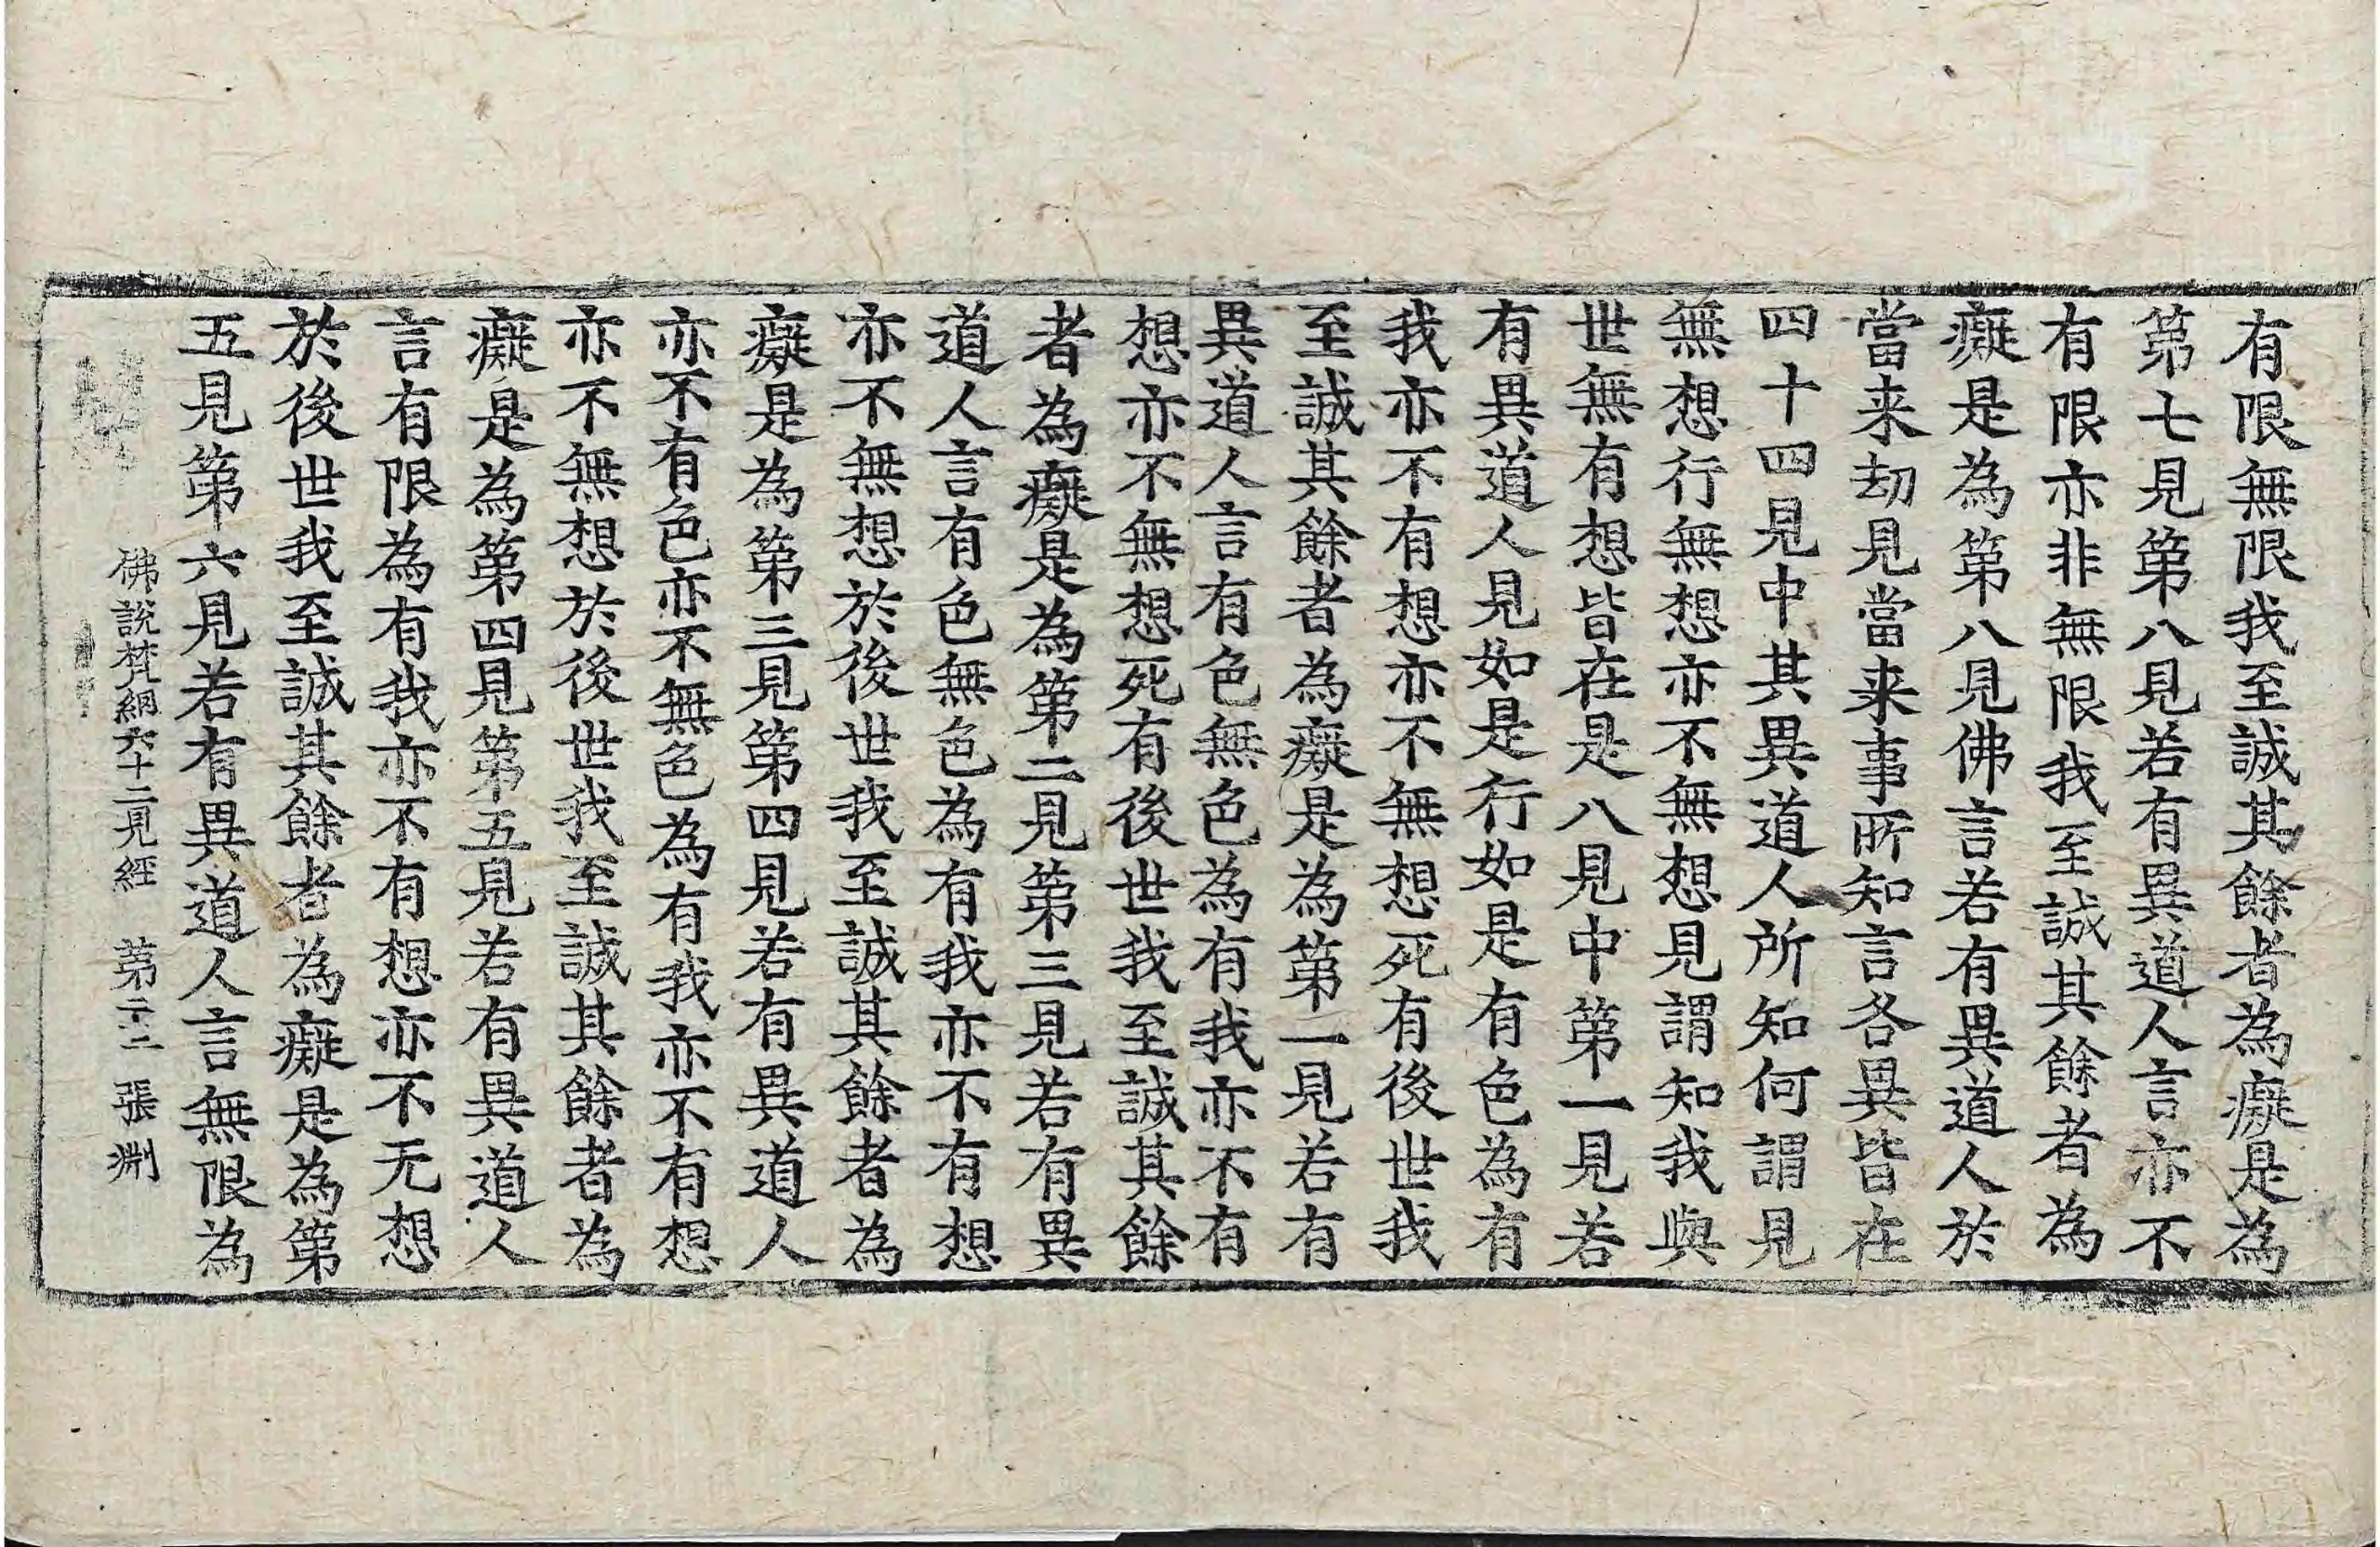 有限無限我至誠其餘者為癡是為
第七見第八見若有異道人言亦不
有限亦非無限我至誠其餘者為
癡是為第八見佛言若有異道人於
當来劫見當来事所知言各異皆在
四十四見中其異道人所知何謂見
無想行無想亦不無想見謂知我與
世無有想皆在是八見中第一見若
有異道人見如是行如是有色為有
我亦不有想亦不無想死有後世我
至誠其餘者為癡是為第一見若有
異道人言有色無色為有我亦不有
想亦不無想死有後世我至誠其餘
者為癡是為第二見第三見若有異
道人言有色無色為有我亦不有想
亦不無想於後世我至誠其餘者為
癡是為第三見第四見若有異道人
亦不有色亦不無色為有我亦不有想
亦不無想於後世我至誠其餘者為
癡是為第四見第五見若有異道人
言有限為有我亦不有想亦不无想
於後世我至誠其餘者為癡是為第
五見第六見若有異道人言無限為
佛說梵網六十二見經 第二十二張 淵